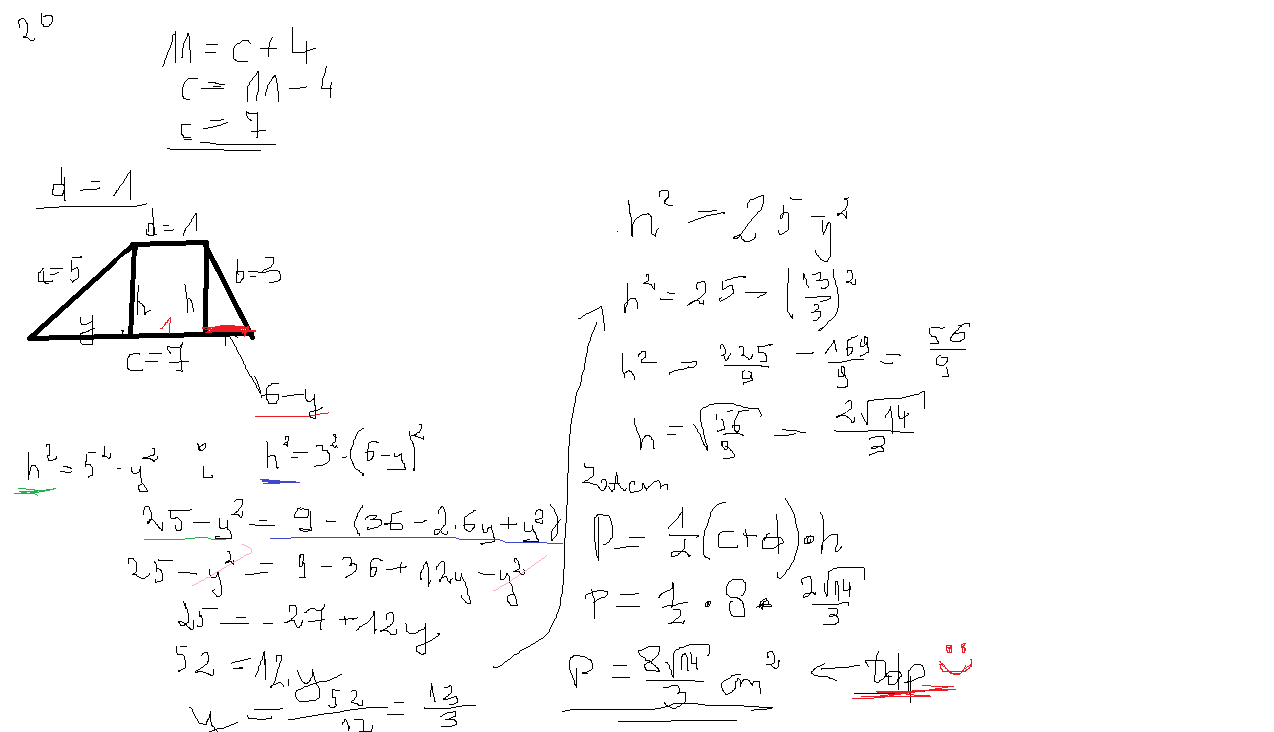 2°
11 = c + 4
c = 11 - 4
c = 7
d = 1
d = 1
a = 5
b = 3
h
h
y
1
c = 7
6 - y
h² = 5² - y² i h² = 3² - (6 - y)²
25 - y² = 9 - (36 - 2·6y + y²)
25 - y² = 9 - 36 + 12y - y²
25 = -27 + 12y
52 = 12.y
y = 52/12 = 13/3
h² = 25 y²
h² = 25 - (13/3)²
h² = 225/9 - 169/9 = 56/9
h = √56/9 = 2√14/3
Zatem
P = 1/2 (c + d) · h
P = 1/2 · 8 · 2√14/3
P = 8√14/3 cm² ← Odp